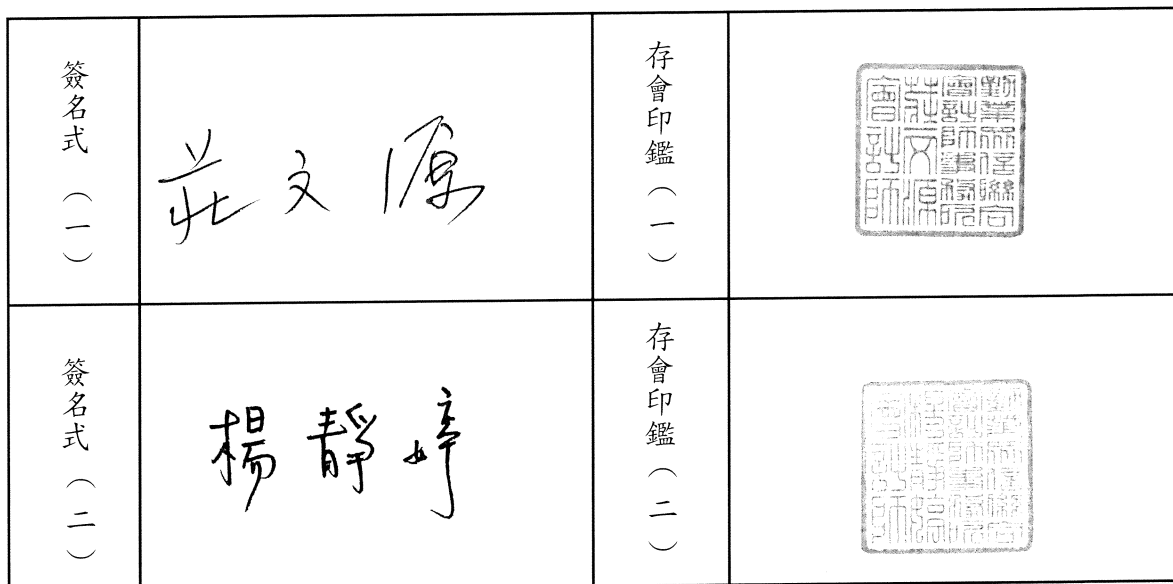 簽名式(一)
莊文源
存會印鑑(一)
勤業眾信聯合
會計師事務所
莊文源
會計師
簽名式(二)
楊靜婷
存會印鑑(二)
勤業眾信聯合
會計師事務所
楊靜婷
會計師